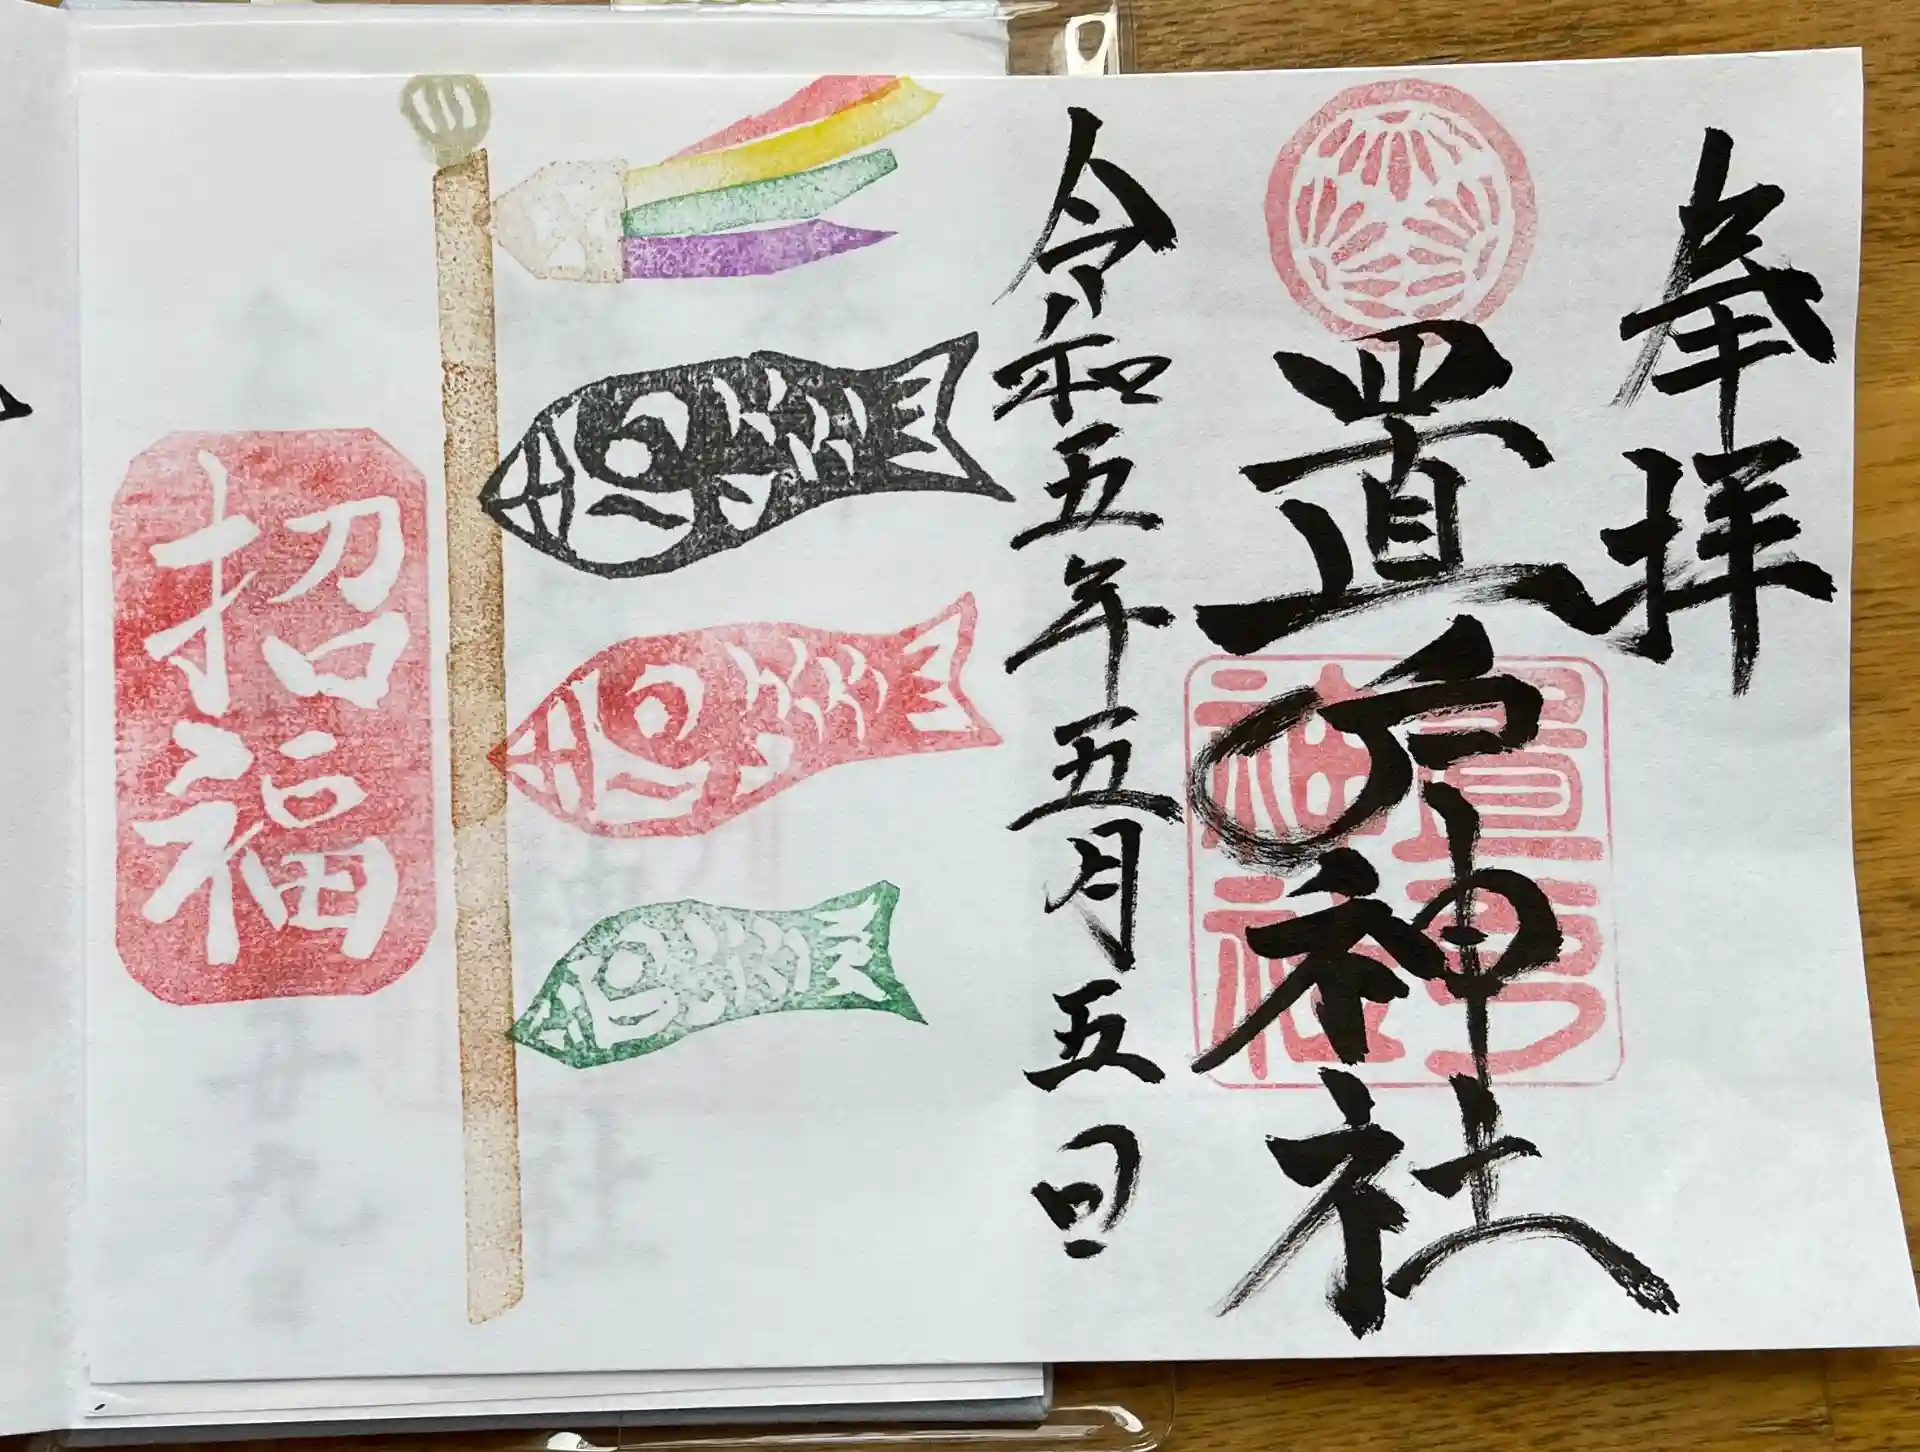 奉拝
置戸神社
置戸神社
令和五年五月五日
招福